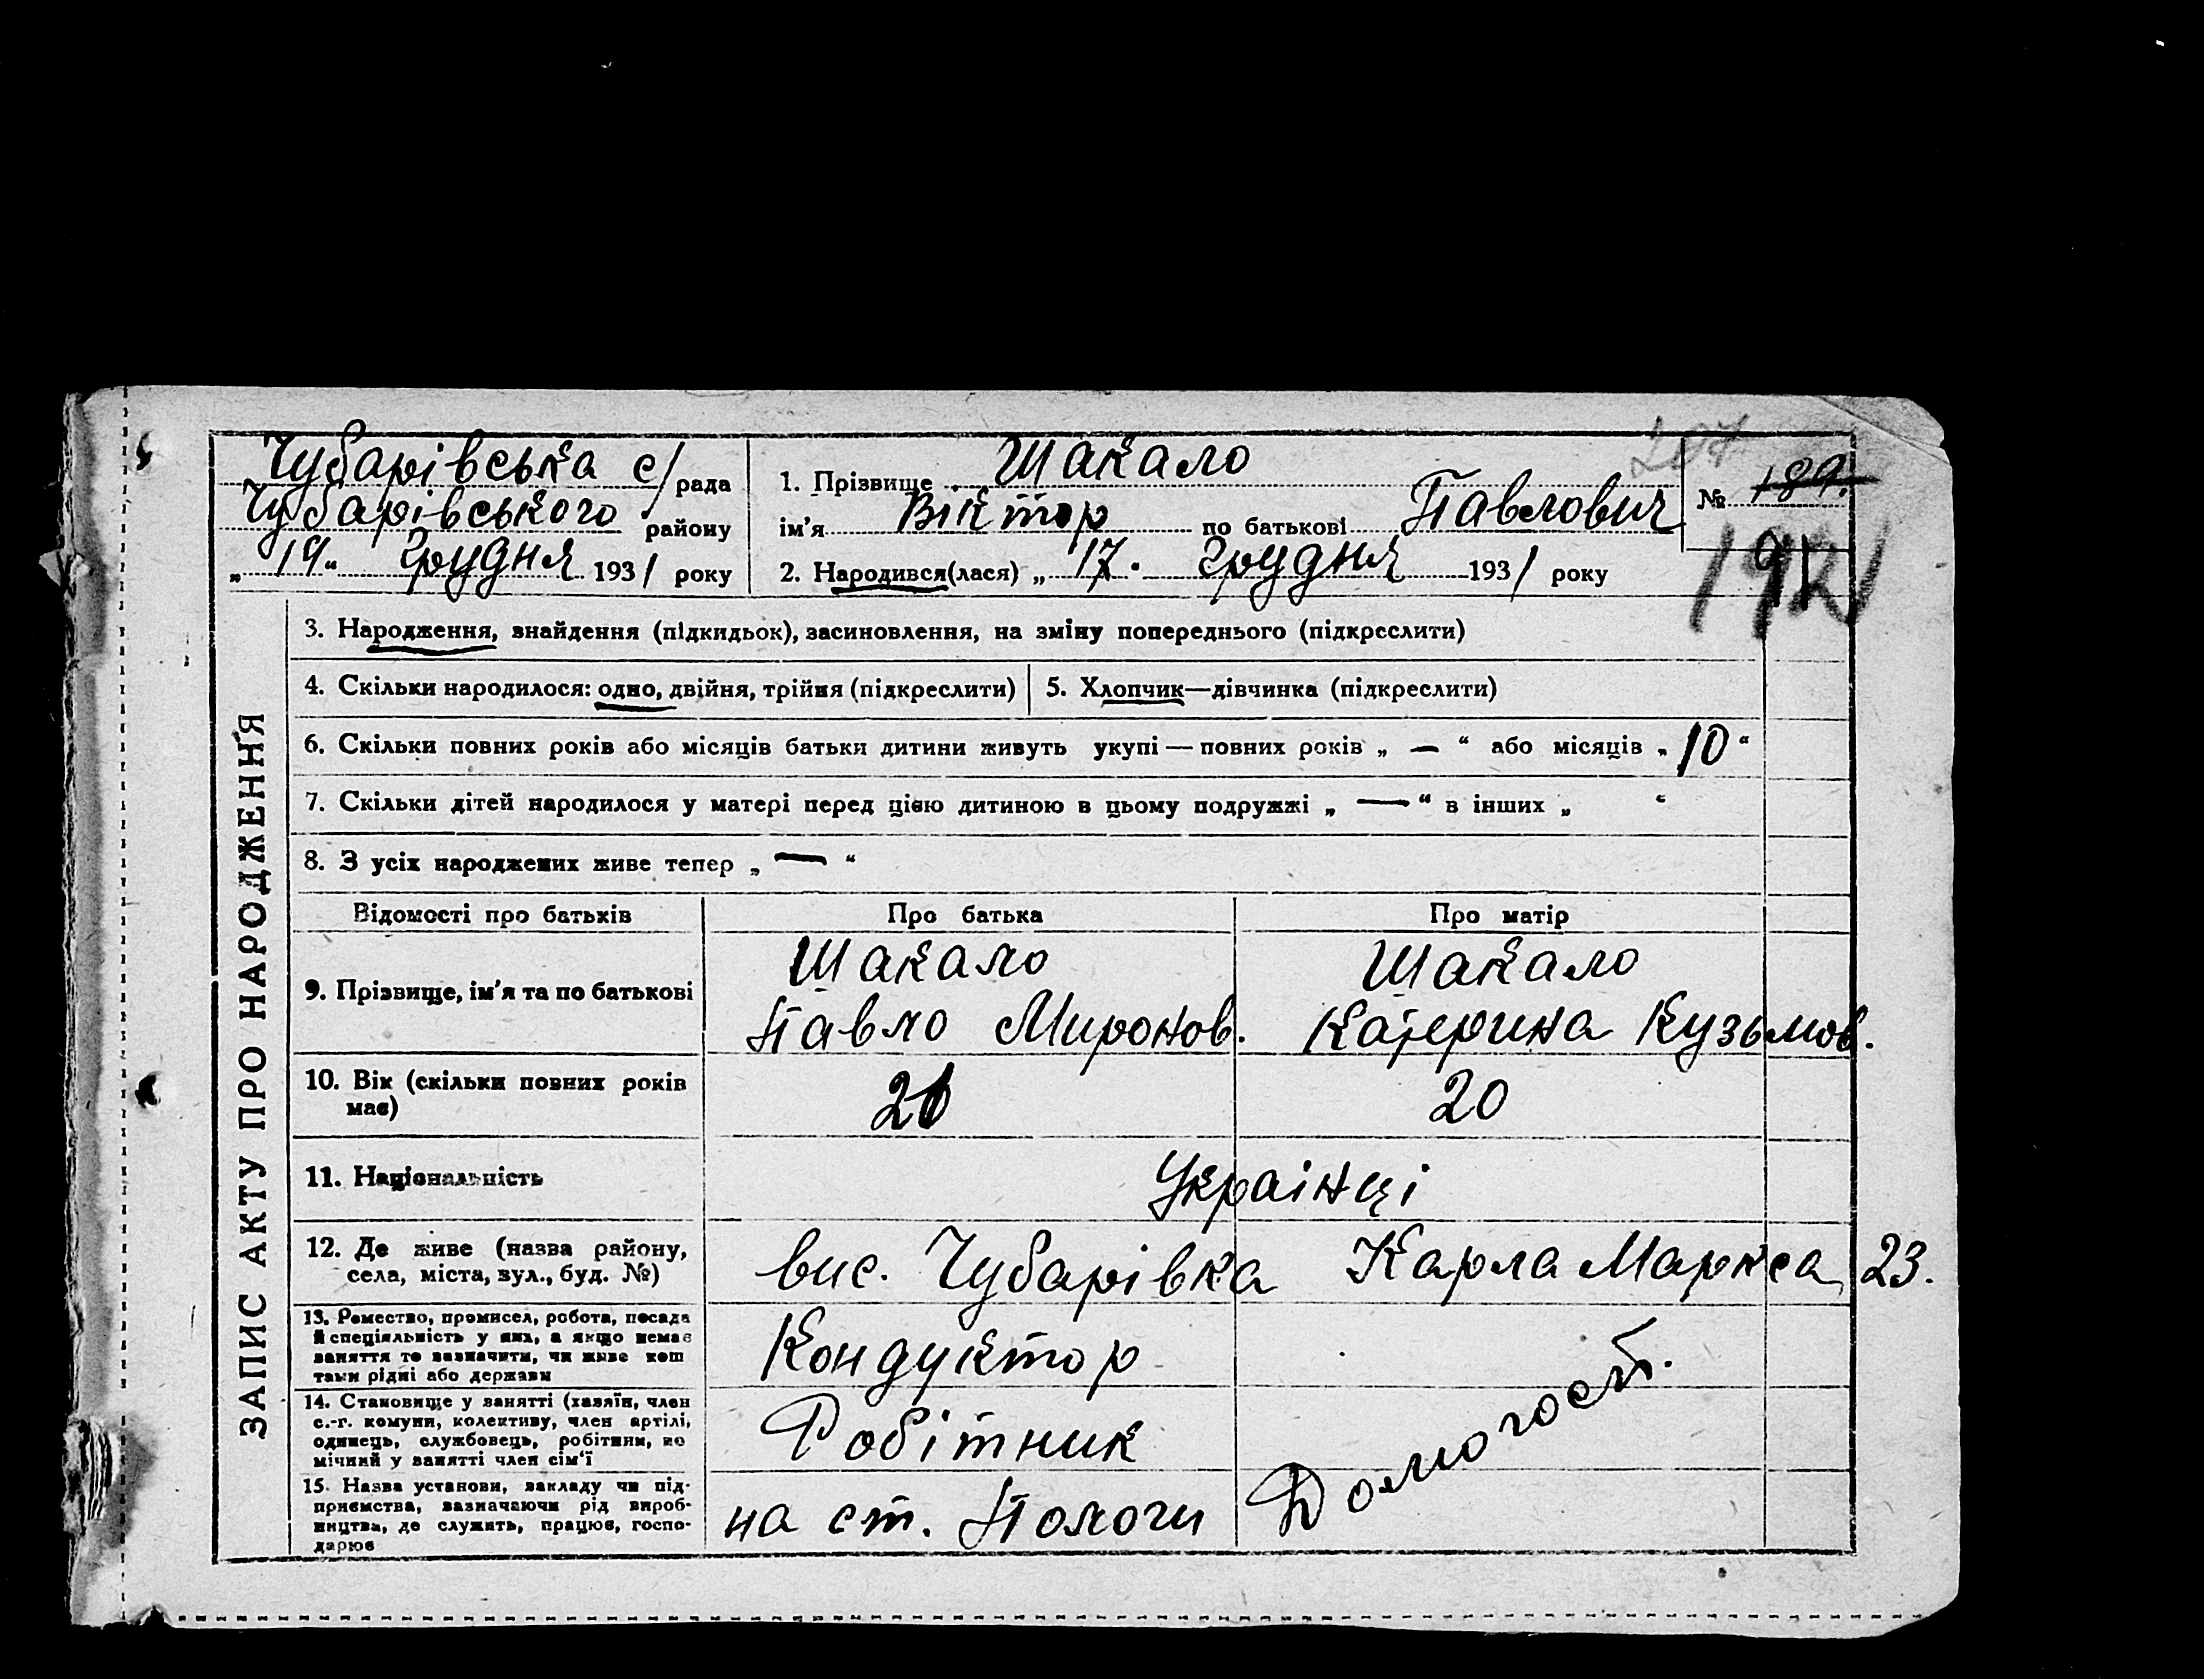 Чубарівська с/рада
Чубарівського району
„19“ Грудня 1931 року
1. Прізвище Шакало
ім’я Віктор по батькові Павлович
2. Народився(лася) „17. Грудня 1931 року
207
№ 189.
3. Народження, знайдення (підкидьок), засиновлення, на зміну попереднього (підкреслити)
4. Скільки народилося: одно, двійня, трійня (підкреслити)
5. Хлопчик—дівчинка (підкреслити)
6. Скільки повних років або місяців батьки дитини живуть укупі — повних років „ — “ або місяців „ 10 “
7. Скільки дітей народилося у матері перед цією дитиною в цьому подружжі „ — “ в інших „ “
8. З усіх народжених живе тепер „ — “
ЗАПИС АКТУ ПРО НАРОДЖЕННЯ
Відомості про батьків Про батька Про матір
9. Прізвище, ім’я та по батькові
Шакало
Павло Миронов.
Шакало
Катерина Кузьмов.
10. Вік (скільки повних років
має)
20
11. Національність
Українці
12. Де живе (назва району,
села, міста, вул., буд. №)
вис. Чубарівка Карла Маркса, 23.
13. Ремество, промисел, робота, посада
й спеціяльність у них, а якщо немає
заняття то зазначити, чи живе кош
тами рідні або держави
Кондуктор
14. Становище у занятті (хазяїн, член
с.-г. комуни, колективу, член артілі,
одинець, службовець, робітник, по
мічний у занятті член сім‘ї
Робітник
15. Назва установи, закладу чи під-
приємства, зазначаючи рід вироб-
ництва, де служить, працює, госпо-
дарює
на ст. Пологи
Домогосп.